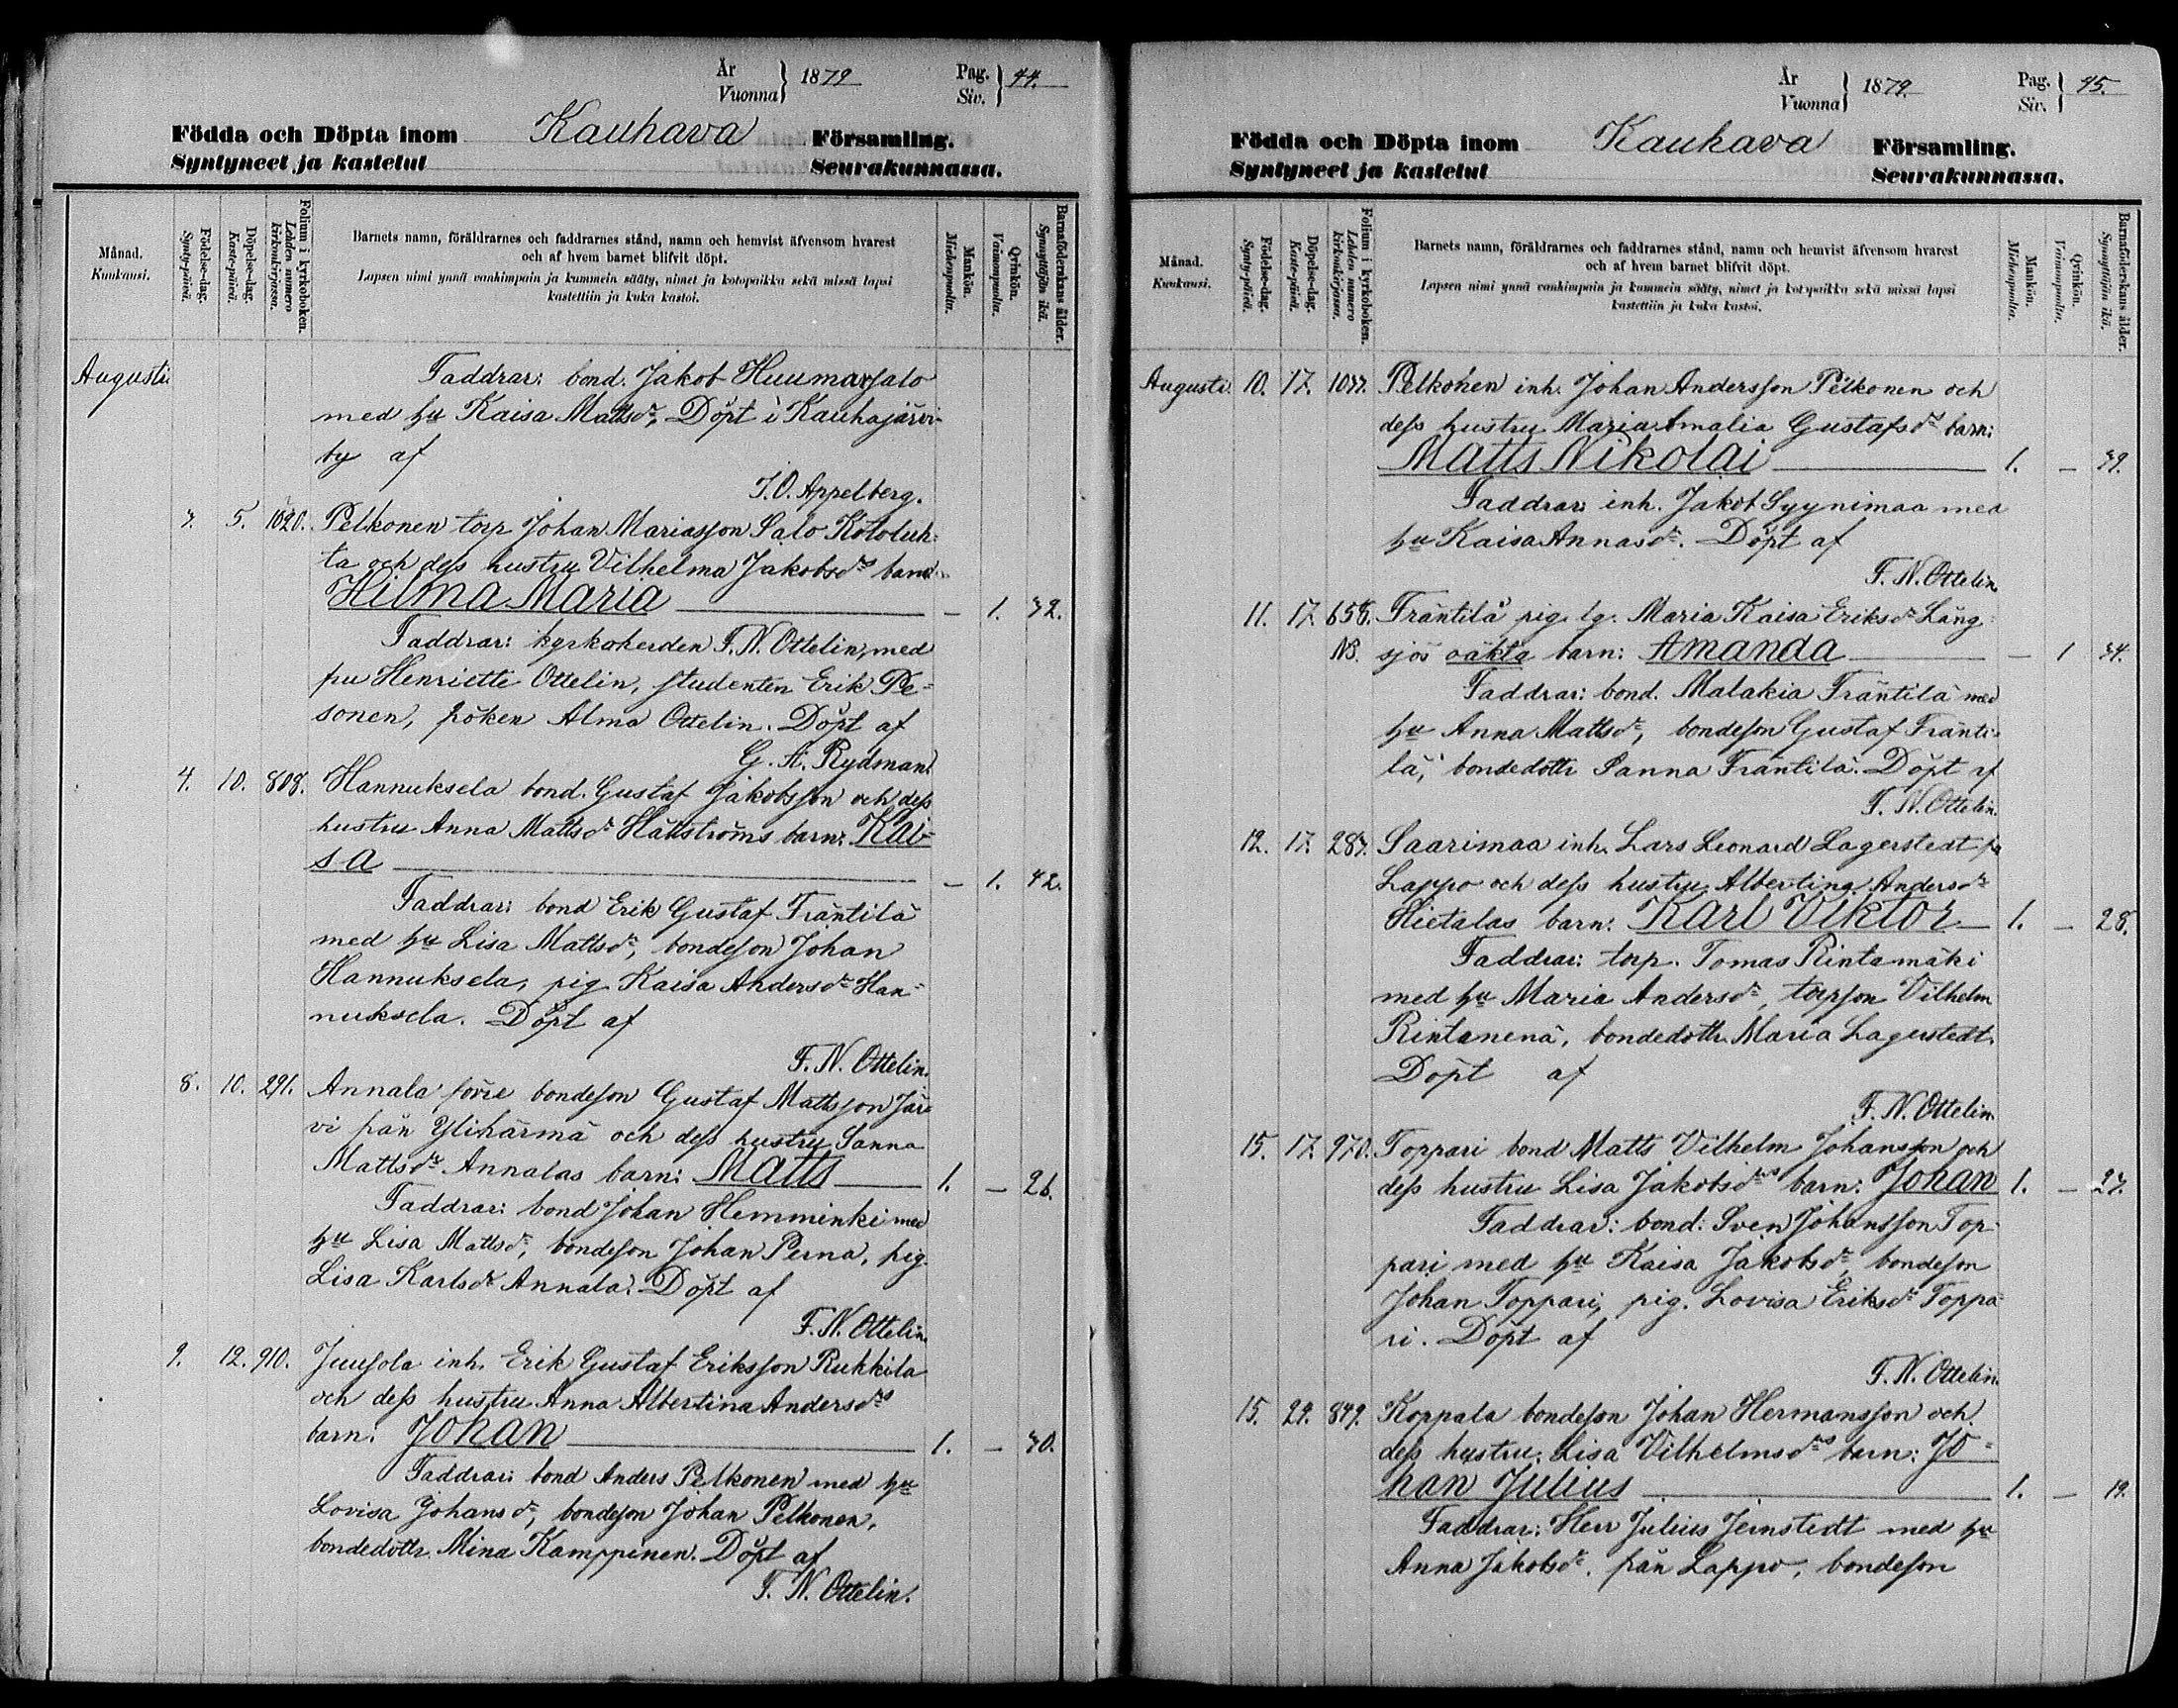 År
Vuonna} 1879
Pag.
Siv.} 44.
Födda och Döpta inom Kauhava Församling.
Syntyneet ja kastetut Seurakunnassa.
Månad.
Kuukausi.
Födelse-dag.
Synty-päivä.
Döpelse-dag.
Kaste-päivä.
Folium i kyrkoboken.
Lehden numero
kirkonkirjassa.
Barnets namn, föräldrarnes och faddrarnes stånd, namn och hemvist äfvensom hvarest
och af hvem barnet blifvit döpt.
Lapsen nimi ynnä vanhimpain ja kummein sääty, nimet ja kotopaikka sekä missä lapsi
kastettiin ja kuka kastoi.
Mankön.
Miehenpuolia.
Qvinkön.
Vaimonpuolia.
Barnaföderskans ålder.
Synnyttäjän ikä.
Augusti Faddrar: bond. Jakob Huumarsalo
med hu Kaisa Mattsdr, Döpt i Kauhajärvi
by af
I. O. Appelberg.
3. 5. 1020. Pelkonen torp Johan Mariasson Salo Kotoluh-
ta och dess hustru Vilhelma Jakobsdrs barn:
Hilma Maria — 1. 32.
Faddrar: kyrkoherden F. N. Ottelin, med
fru Henriette Ottelin, studenten Erik Pe-
sonen, fröken Alma Ottelin. Döpt af
G. A. Rydman.
4. 10. 808. Hannuksela bond. Gustaf Jakobsson och dess
hustru Anna Mattsdr Hättströms barn: Kai-
sa — 1. 42.
Faddrar: bond Erik Gustaf Fräntilä
med hu Lisa Mattsdr, bondeson Johan
Hannuksela, pig Kaisa Andersdr Han-
nuksela. Döpt af
F. N. Ottelin.
8. 10. 291. Annala förre bondeson Gustaf Mattsson Jär-
vi från Ylihärmä och dess hustru Sanna
Mattsdr Annalas barn: Matts 1. — 26.
Faddrar: bond Johan Hemminki med
hu Lisa Mattsdr, bondeson Johan Perna, pig.
Lisa Karlsdr Annala. Döpt af
F. N. Ottelin.
9. 12. 910. Juusola inh. Erik Gustaf Eriksson Rukkila
och dess hustru Anna Albertina Andersdrs
barn: Johan 1. — 30.
Faddrar: bond Anders Pelkonen med hu
Lovisa Johansdr, bondeson Johan Pelkonen,
bondedottr. Mina Kamppinen. Döpt af
F. N. Ottelin.
År
Vuonna} 1879.
Pag.
Siv.} 45.
Födda och Döpta inom Kauhava Församling.
Syntyneet ja kastetut Seurakunnassa.
Månad.
Kuukausi.
Födelse-dag.
Synty-päivä.
Döpelse-dag.
Kaste-päivä.
Folium i kyrkoboken.
Lehden numero
kirkonkirjassa.
Barnets namn, föräldrarnes och faddrarnes stånd, namn och hemvist äfvensom hvarest
och af hvem barnet blifvit döpt.
Lapsen nimi ynnä vanhimpain ja kummein sääty, nimet ja kotopaikka sekä missä lapsi
kastettiin ja kuka kastoi.
Mankön.
Miehenpuolia.
Qvinkön.
Vaimonpuolia.
Barnaföderskans ålder.
Synnyttäjän ikä.
Augusti. 10. 17. Pelkonen inh. Johan Andersson Pelkonen och
dess hustru Maria Amalia Gustafsdrs barn:
Matts Nikolai 1. — 39.
Faddrar: inh. Jakob Syynimaa med
hu Kaisa Annasdr. Döpt af
F. N. Ottelin
11. 17. 658. Fräntilä pig. lg. Maria Kaisa Eriksdr Lång-
NB. sjös oäkta barn: Amanda — 1 34.
Faddrar: bond. Malakia Fräntilä med
hu Anna Mattsdr, bondeson Gustaf Fränti-
lä, bondedottr Sanna Fräntilä. Döpt af
F. N. Ottelin.
12. 17. 283. Saarimaa inh. Lars Leonard Lagerstedt fr
Lappo och dess hustru Albertina Andersdr
Hietalas barn: Karl Viktor 1. — 28.
Faddrar: torp. Tomas Rintamäki
med hu Maria Andersdr, torpson Vilhelm
Rintanenä, bondedottr. Maria Lagerstedt.
Döpt af
F. N. Ottelin.
15. 17. 970. Toppari bond Matts Vilhelm Johansson och
dess hustru Lisa Jakobsdrs barn: Johan 1. — 27.
Faddrar: bond: Sven Johansson Top-
pari med hu Kaisa Jakobsdr, bondeson
Johan Toppari, pig. Lovisa Eriksdr Toppa-
ri. Döpt af
F. N. Ottelin.
15. 24. 849. Koppala bondeson Johan Hermansson och
dess hustru Lisa Vilhelmsdrs barn: Jo-
han Julius 1. — 19.
Faddrar: Herr Julius Jernstedt med hu
Anna Jakobsdr. från Lappo, bondeson